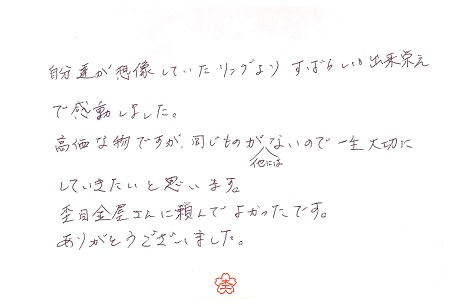 自分達が想像していたリングより すばらしい出来栄え
で感動しました。
高価な物ですが、同じものが他にはないので一生大切に
していきたいと思います。
杢目金屋さんに頼んでよかったです。
ありがとうございました。
杢